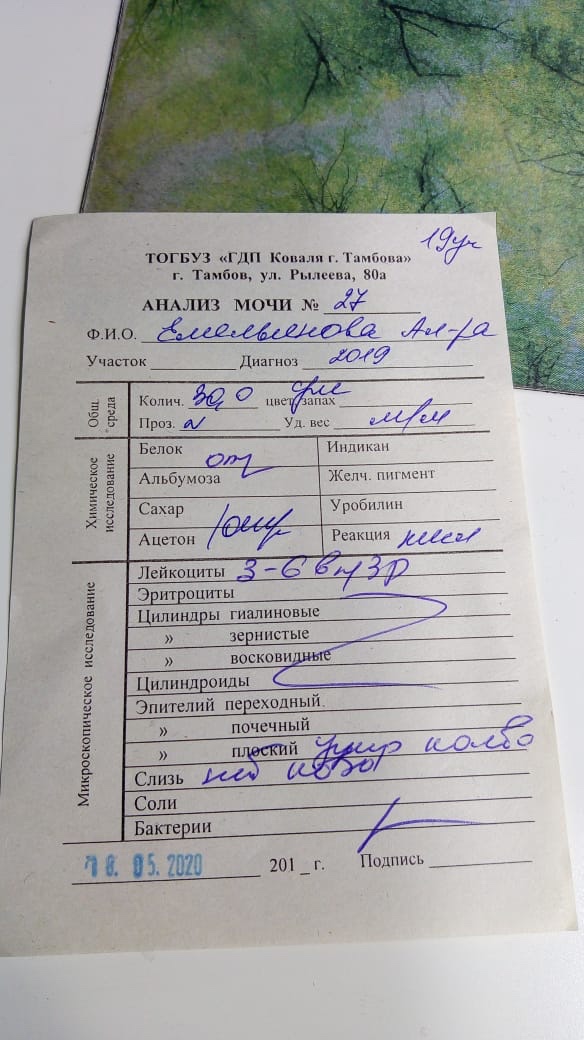 19уч
ТОГБУЗ «ГДП Коваля г. Тамбова»
г. Тамбов, ул. Рылеева, 80а
АНАЛИЗ МОЧИ № 27
Ф.И.О. Емельянова Ал-ра
Участок Диагноз 2019
Общ. среда
Колич. 30,0 цвет, запах
Проз. Уд. вес м/м
Химическое исследование
Белок отр Индикан
Альбумоза Желч. пигмент
Сахар Уробилин
Ацетон отр Реакция кисл
Микроскопическое исследование
Лейкоциты 3-6 в п/зр
Эритроциты
Цилиндры гиалиновые
» зернистые
» восковидные
Цилиндроиды
Эпителий переходный.
» почечный
» плоский умер колво
Слизь неб
Соли
Бактерии
18. 05. 2020 201 _ г. Подпись